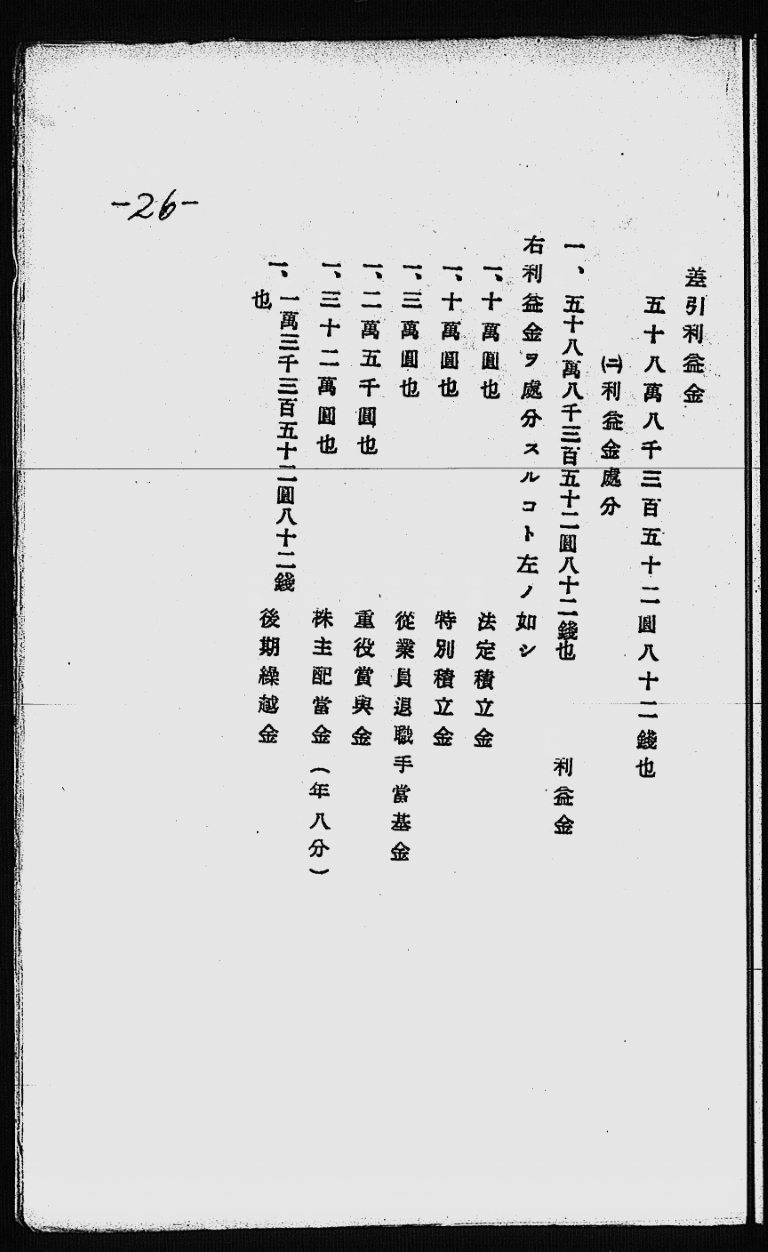 差引利益金
五十八萬八千三百五十二圓八十二錢也
㈡利益金處分
一、五十八萬八千三百五十二圓八十二錢也 利益金
右利益金ヲ處分スルコト左ノ如シ
一、十萬圓也 法定積立金
一、十萬圓也 特別積立金
一、三萬圓也 從業員退職手當基金
一、二萬五千圓也 重役賞與金
一、三十二萬圓也 株主配當金(年八分)
一、一萬三千三百五十二圓八十二錢 後期繰越金
也
-26-